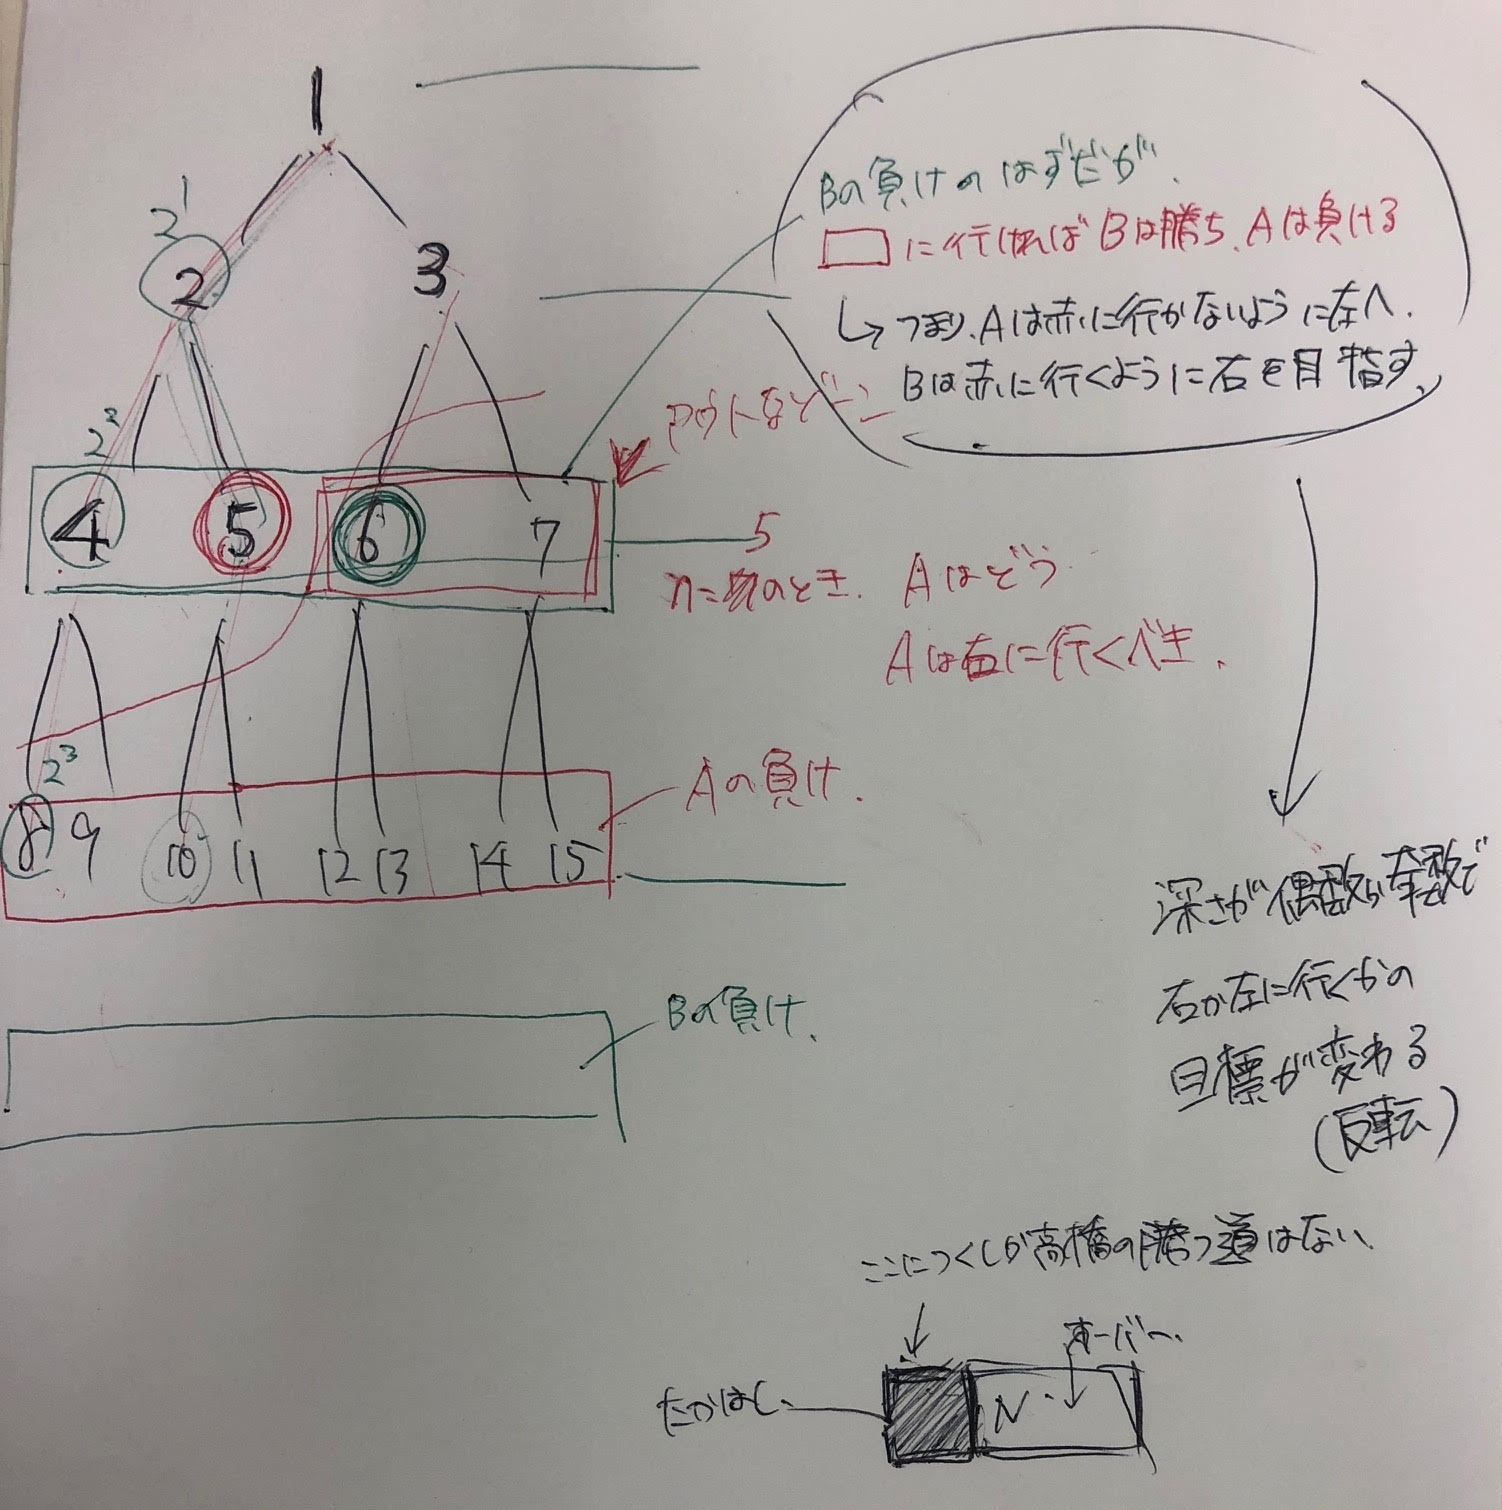 1
2¹
2
3
2²
4 5 6 7
2³
8 9 10 11 12 13 14 15
Bの負けのはずだが、
に行ければBは勝ち、Aは負ける
↳つまり、Aは赤に行かないように左へ、
Bは赤に行くように右を目指す、
アウトなゾーン
5
n=のとき、Aはどう
Aは右に行くべき、
Aの負け、
Bの負け、
深さが偶数か奇数で
右か左に行くかの
目標が変わる
(反転)
ここにつくしか高橋の勝つ道はない、
オーバー、
たかはし、
N